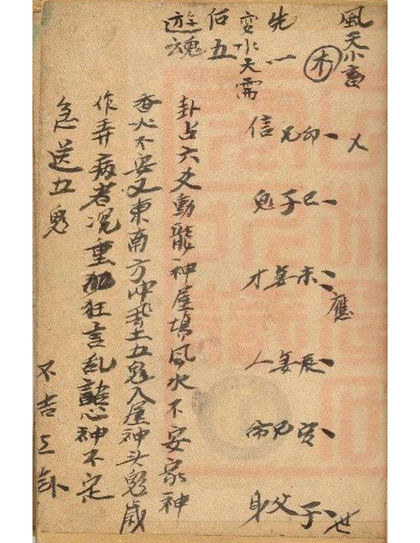 風天小畜
木
乂
應
世
卯巳未辰寅子
兄子妻妻兄父
信鬼才人命身
先一
变水天需
后五
遊魂
卦占六爻動龍神屋填風水不安家神
香火不安又東南方冲土五鬼入屋神头鬼歲
作弄病者况重狂言乱語心神不定
急送五鬼
不吉之卦